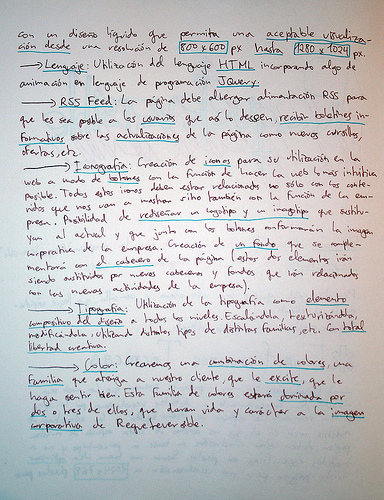 con un diseño líquido que permita una aceptable visualiza-
ción desde una resolución de 800x600 px hasta 1280x1024 px.
→ Lenguaje: Utilización del lenguaje HTML incorporando algo de
animación en lenguaje de programación JQuery.
→ RSS Feed: La página debe albergar alimentación RSS para
que les sea posible a los usuarios que así lo deseen, recibir boletines in-
formativos sobre las actualizaciones de la página como nuevos cursillos,
ofertas, etc.
→ Iconografía: Creación de iconos para su utilización en la
web a modo de botones con la función de hacer la web lo más intuitiva
posible. Todos estos iconos deben estar relacionados no sólo con los conte-
nidos que nos van a mostrar sino también con la función de la em-
presa. Posibilidad de rediseñar un logotipo y un imagotipo que sustitu-
yan al actual y que junto con los botones conformarán la imagen
corporativa de la empresa. Creación de un fondo que se comple-
mentará con el cabecero de la página (estos dos elementos irán
siendo sustituidos por nuevos cabeceros y fondos que irán relacionados
con las nuevas actividades de la empresa).
→ Tipografía: Utilización de la tipografía como elemento
compositivo del diseño a todos los niveles. Escalándola, texturizándola,
modificándola y utilizando distintos tipos de distintas familias, etc. Con total
libertad creativa.
→ Color: Crearemos una combinación de colores, una
familia que atraiga a nuestro cliente, que le excite, que le
haga sentir bien. Esta familia de colores estará dominada por
dos o tres de ellos, que darán vida y carácter a la imagen
corporativa de Requeteversible.